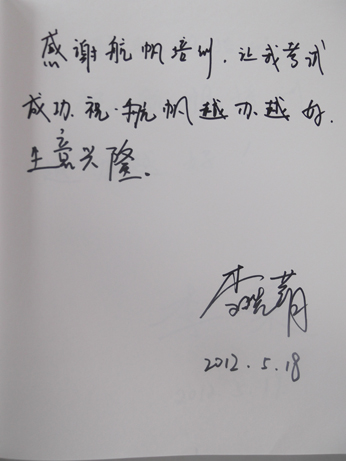 感谢航帆培训，让我考试
成功.祝.航帆越办越好.
生意兴隆。
2012.5.18